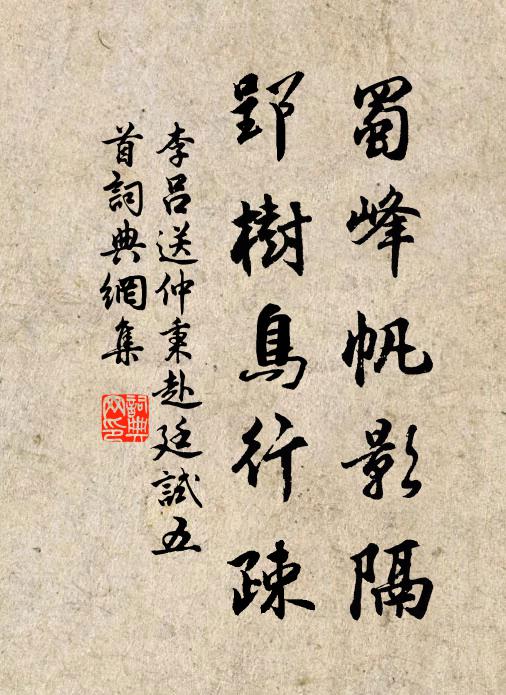 蜀峰帆影隔
郢樹鳥行疎
李呂送仲秉赴廷試五
首詞典網集
詞典
網印